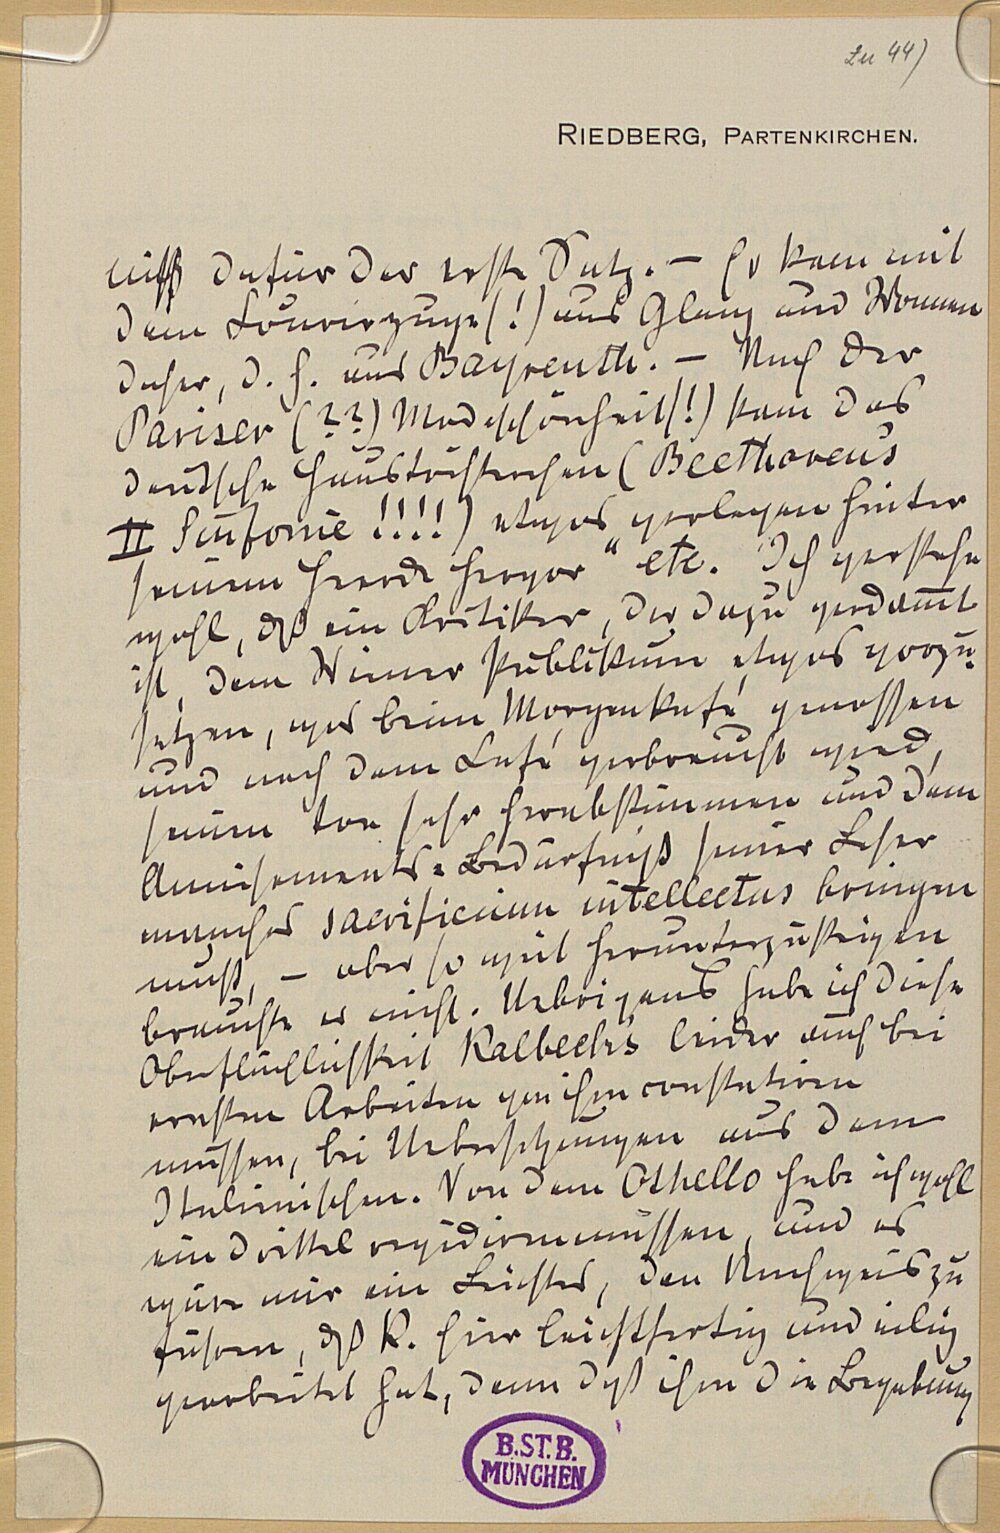 Zu 44)
RIEDBERG, PARTENKIRCHEN.
dafür der erste Satz. – Er kam mit
dem Courierzuge (!) aus Glanz und Wonnen
daher, d. h. aus Bayreuth. – Nach der
Pariser (??) Modeschönheit (!) kam das
deutsche Haustöchterchen (Beethoven's
II Sinfonie !!!!) etwas verlegen hinter
seinem Heerde hervor" etc. Ich verstehe
wohl, dß ein Kritiker, der dazu verdam̅t
ist, dem Wiener Publikum etwas vorzu-
setzen, was beim Morgenkafé genossen
und nach dem Café verbraucht wird,
seinen Ton sehr herabstimmen und dem
Amüsements-Bedürfniß seiner Leser
manches sacrificium intellectus bringen
muß, – aber so weit herunterzusteigen
brauchte er nicht. Uebrigens habe ich diese
Oberflächlichkeit Kalbeck's leider auch bei
ernsten Arbeiten von ihm constatiren
müssen, bei Uebersetzungen aus dem
Italienischen. Von dem Othello habe ich wohl
ein Drittel revidiren müssen, und es
wäre mir ein Leichtes, den Nachweis zu
führen, dß K. hier leichtfertig und eilig
gearbeitet hat, denn dß ihm die Begabung
B.ST.B.
MÜNCHEN